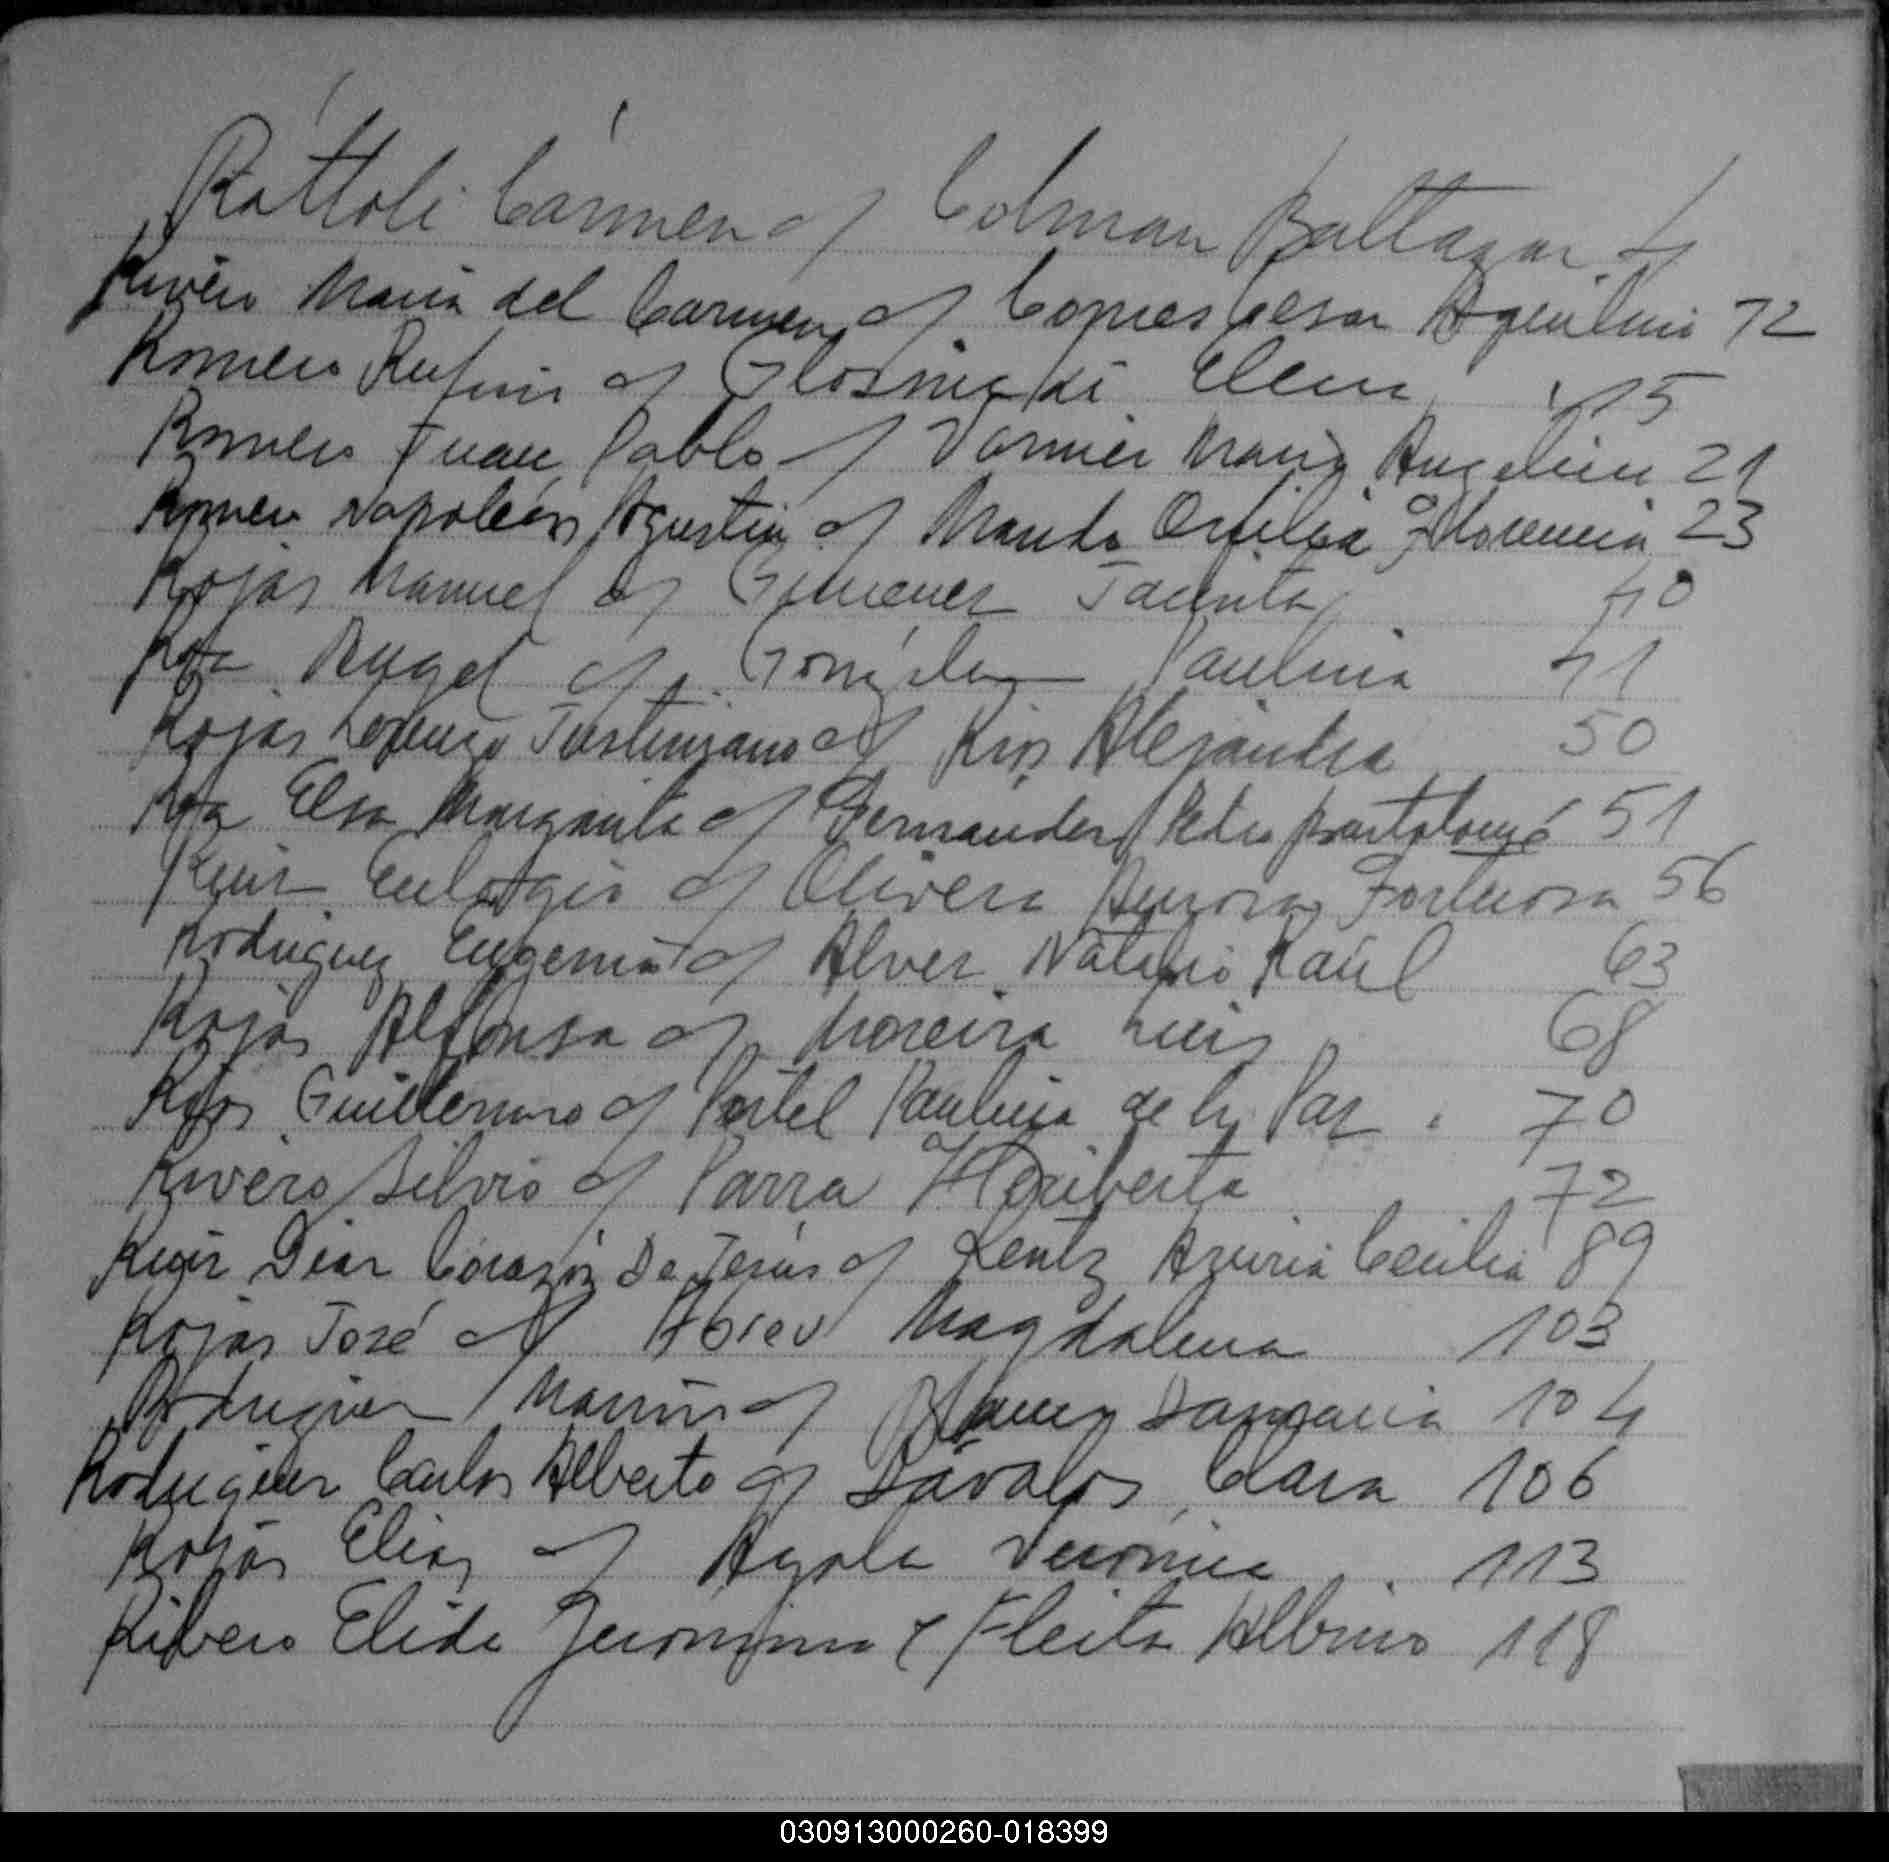 Rattoli Carmen c/ Colman Baltazar 4
Rivero Maria del Carmen c/ Copres Cesar Aquilino 72
Romero Rufino c/ Elena 15
Romero Juan Pablo c/ Vannier Maria Angelica 21
Romero Napoleón Agustin c/ Orfilia Florencia 23
Rojas Manuel c/ Gimenez Jacinta 40
Roa Angel c/ González Paulina 41
Rojas Lorenzo Justiniano c/ Rios Alejandra 50
Roa Elsa Margarita c/ Fernandez Pedro Bartolomé 51
Ruiz Eulogio c/ Olivera Aurora Fortuosa 56
Rodriguez Eugenia c/ Alvez Natalio Raúl 63
Rojas Alfonsa c/ Moreira Luis 68
Rojas Guillermo c/ Portel Paulina de la Paz 70
Rivero Silvio c/ Parra Heriberta 72
Ruiz Diaz Corazón De Jesús c/ Lentz Azucia Cecilia 89
Rojas José c/ Abreu Magdalena 103
Rodriguez c/ Blanco Damacia 104
Rodriguez Carlos Alberto c/ Dávalos Clara 106
Rojas Elias c/ Ayala Veronica 113
Ribero Elida Geronima c/ Fleita Albino 118
030913000260-018399